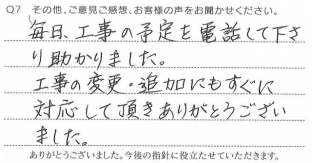 Q7 その他、ご意見ご感想、お客様の声をお聞かせください。
毎日、工事の予定を電話して下さ
り助かりました。
工事の変更・追加にもすぐに
対応して頂きありがとうござい
ました。
ありがとうございました。今後の指針に役立たせていただきます。